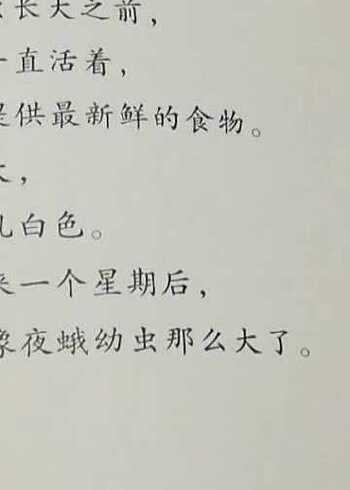 长大之前，
一直活着，
提供最新鲜的食物。
大，
乳白色。
来一个星期后，
像夜蛾幼虫那么大了。